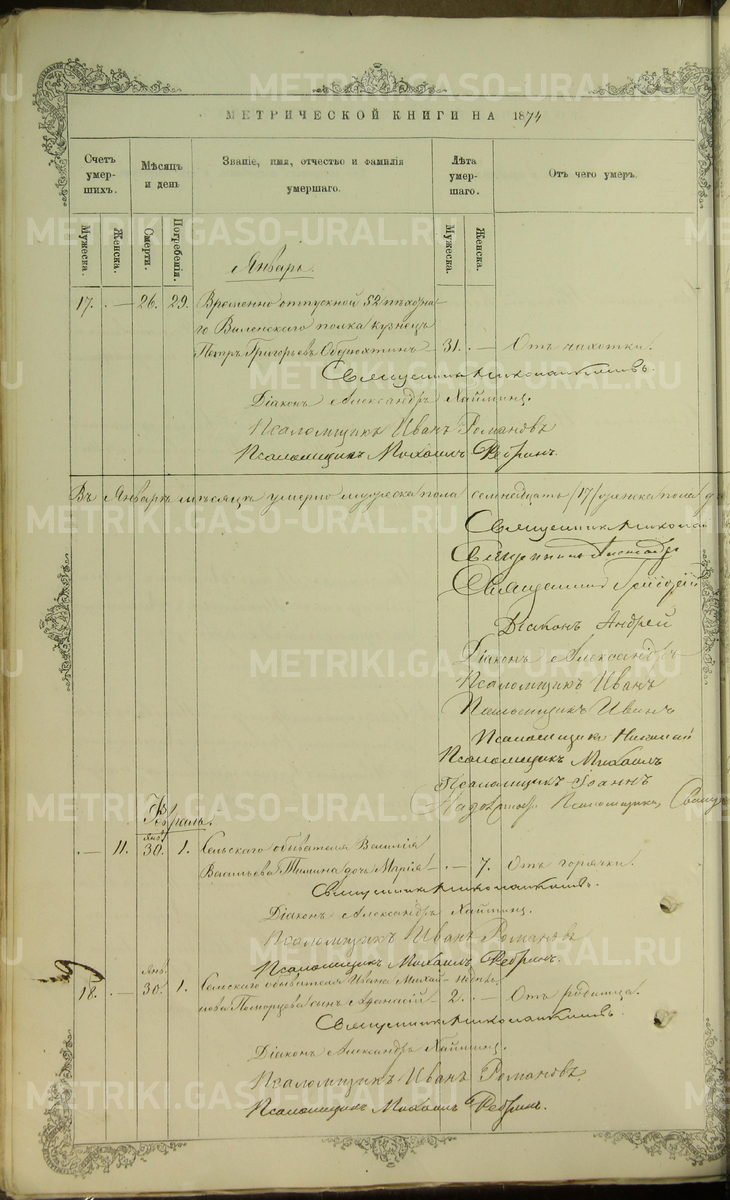 МЕТРИЧЕСКОЙ КНИГИ НА 1874
Счетъ умер- шихъ.
Мѣсяцъ и день
Званіе, имя, отчество и фамилія умершаго.
Лѣта умер- шаго.
Отъ чего умеръ.
Мужеска.
Женска.
Смерти.
Погребенія.
Мужеска.
Женска.
Январь.
17. — 26. 29. Временно отпускной 52 пѣхотна-
го Виленскаго полка кузнецъ
Петръ Григорьевъ 31. — Отъ чахотки.
Священник
Діаконъ Александръ
Псаломщикъ Иванъ Романовъ
Псаломщикъ Михаилъ Ребринъ.
Въ Январѣ мѣсяцѣ умерло мужеска пола семнедцать /17/ женска пола
Священник
Священникъ
Священникъ Григорій
Діаконъ Андрей
Діаконъ Александръ
Псаломщикъ Иванъ
Псаломщикъ Иванъ
Псаломщикъ Николай
Псаломщикъ Михаилъ
Псаломщикъ Іоаннъ
Псаломщикъ,
Февраль.
Янв.
— 11. 30. 1. Сельскаго обывателя Василія
Васильева Тимина дочь Марія — 7. Отъ горячки.
Священник
Діаконъ Александръ
Псаломщикъ Иванъ Романовъ
Псаломщикъ Михаилъ Ребринъ.
Янв.
18. — 30. 1. Сельскаго обывателя Ивана Михай-
лова Поморцева сынъ Афанасій 2. недѣль — Отъ родимца.
Священник
Діаконъ Александръ
Псаломщикъ Иванъ Романовъ.
Псаломщикъ Михаилъ Ребринъ.
METRIKI.GASO-URAL.RU